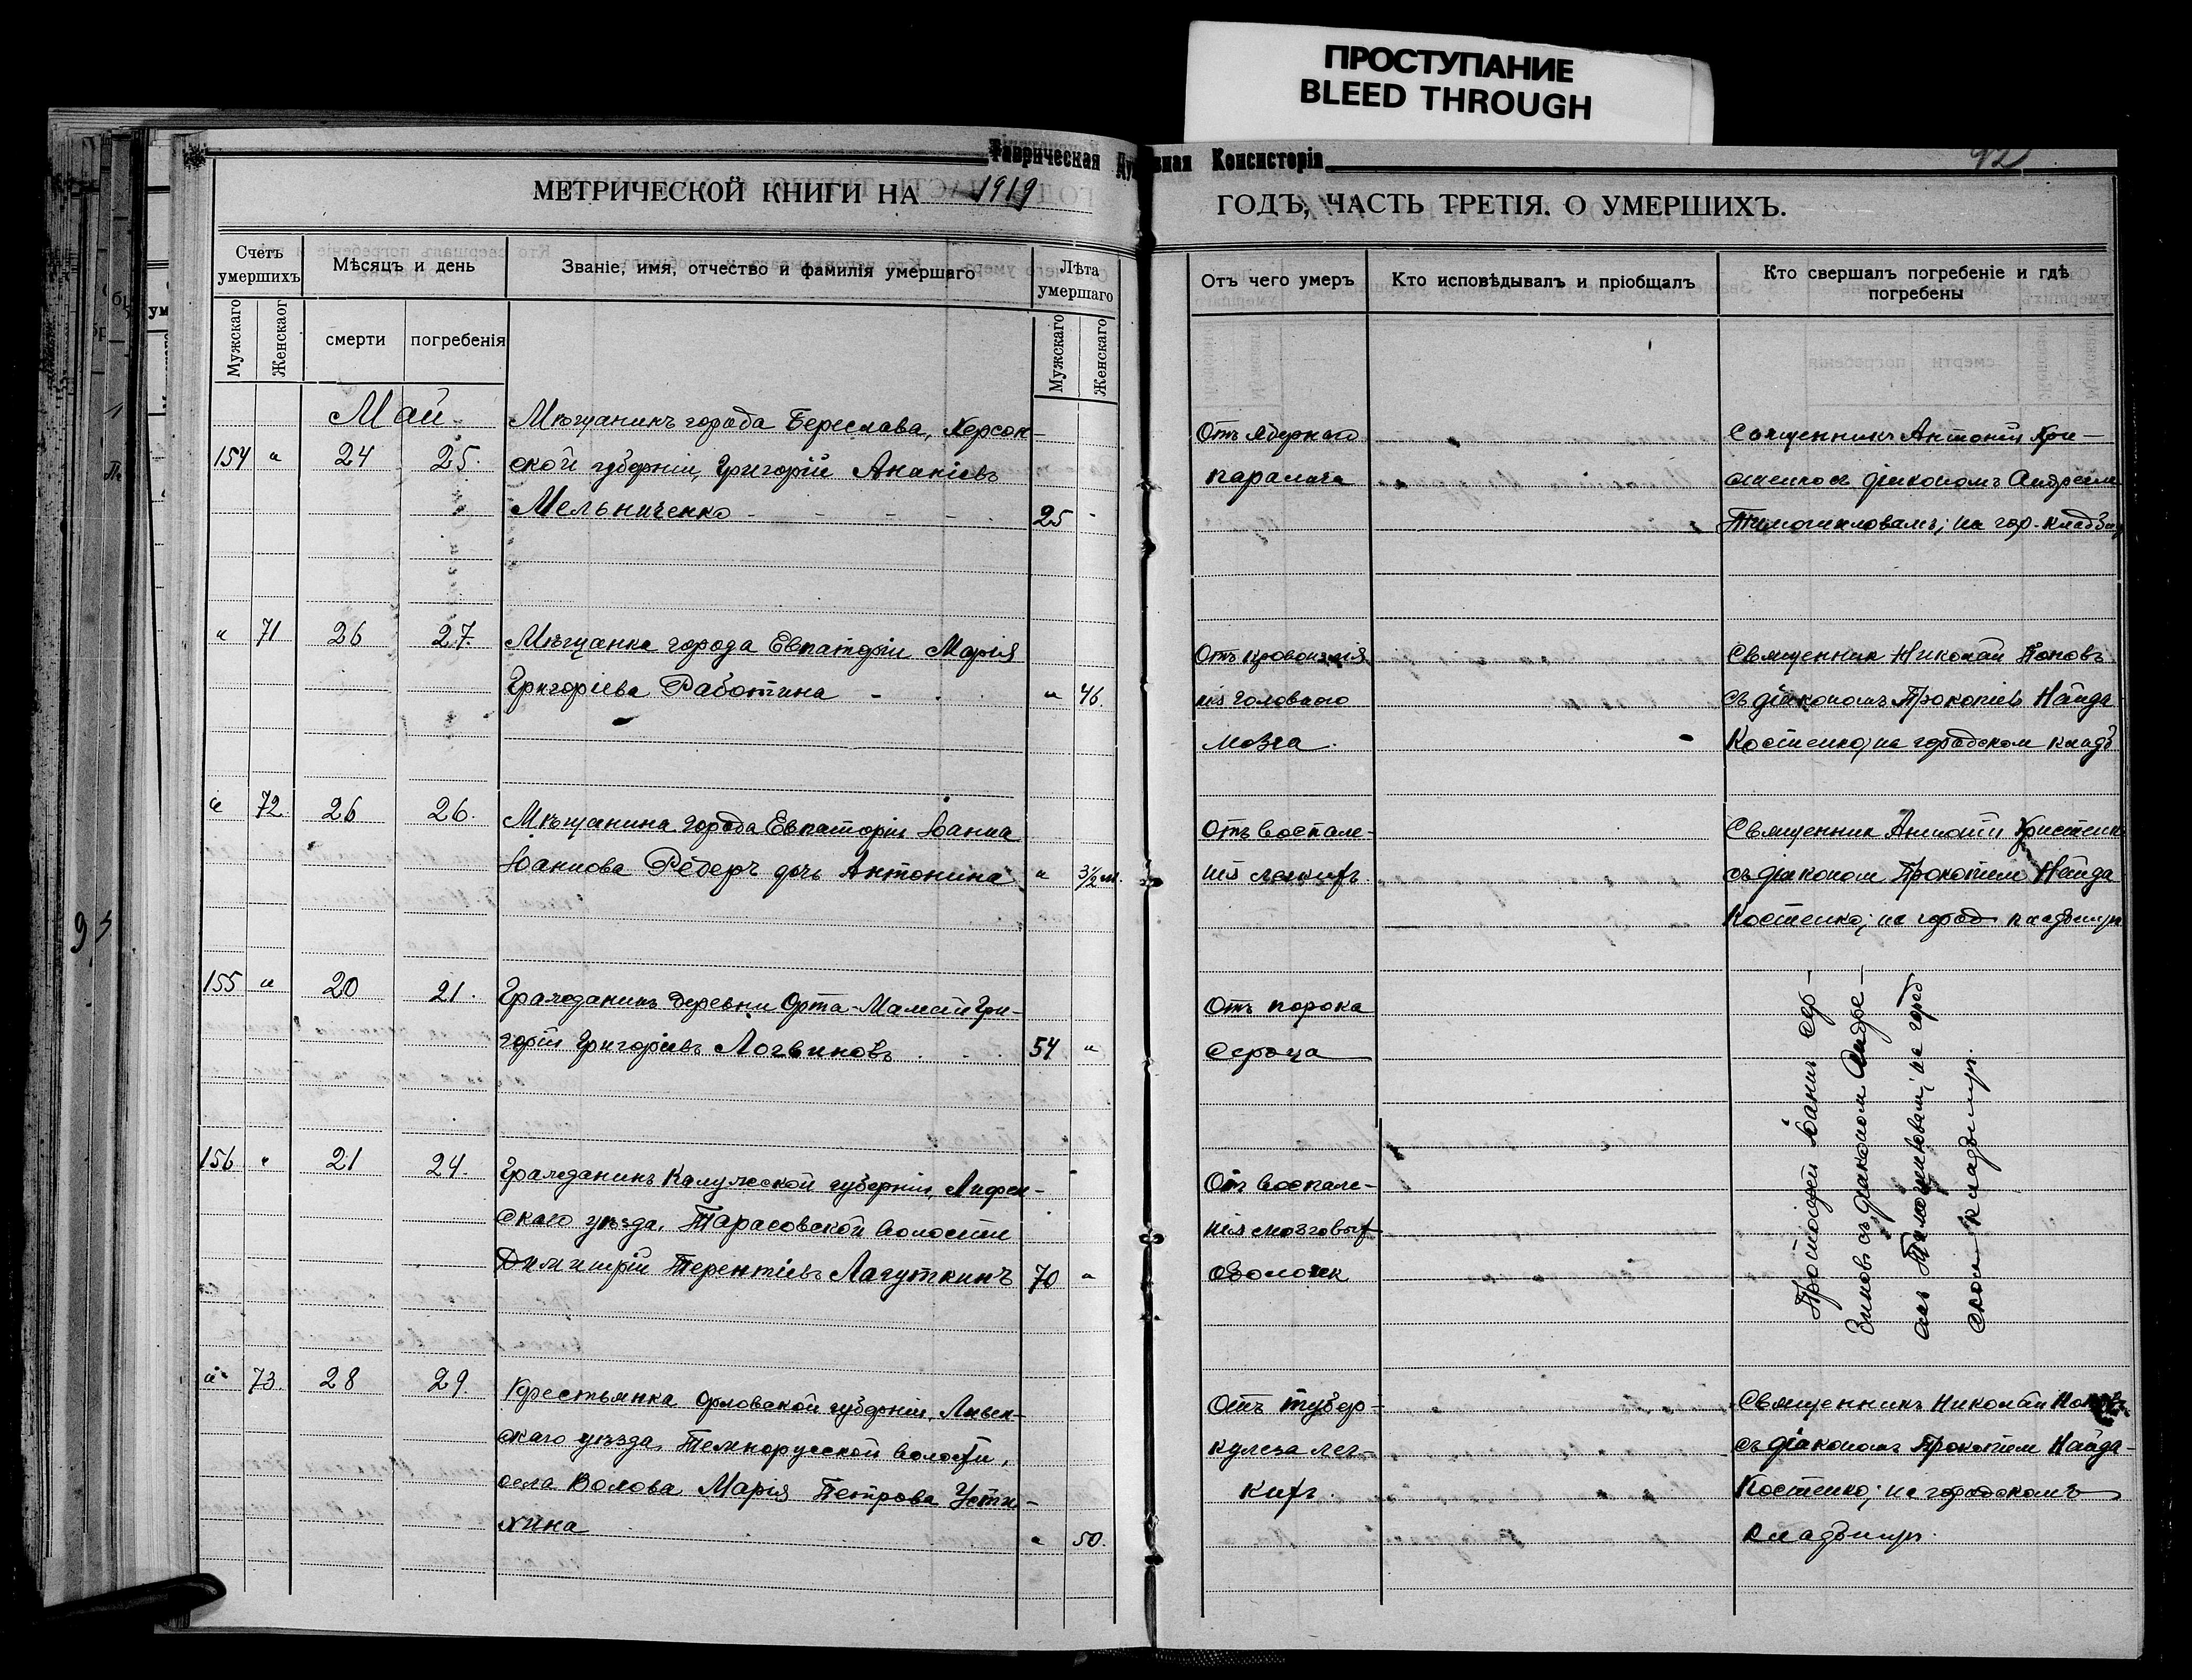 ПРОСТУПАНИЕ
BLEED THROUGH
Таврическая Духовная Консисторія
92
МЕТРИЧЕСКОЙ КНИГИ НА 1919 ГОДЪ, ЧАСТЬ ТРЕТІЯ. О УМЕРШИХЪ.
Счетъ умершихъ
Мужскаго
Женскаог
Мѣсяцъ и день
смерти
погребенія
Званіе, имя, отчество и фамилія умершаго
Лѣта умершаго
Мужскаго
Женскаго
Отъ чего умеръ
Кто исповѣдывалъ и пріобщалъ
Кто свершалъ погребеніе и гдѣ
погребены
Май
154 " 24 25.
Мѣщанинъ города Береслава, Херсон-
ской губерніи, Григорій Ананіевъ
Мельниченко 25 -
Отъ
паралича
Священникъ Антоній
діакономъ Андреем
на гор. кладби
" 71 26 27.
Мѣщанка города Евпаторіи Марія
Григоріева Работина " 46.
Отъ
головного
мозга.
Священник Николай Поповъ
съ діакономъ Прокопіев Найда-
Костенко, на городском кладб
" 72 26 26.
Мѣщанина города Евпаторіи Іоанна
Іоаннова Ребергъ дочь Антонина " 3½ м.
Отъ воспале-
нія легкихъ
Священник Антоній
съ діаконом Прокопіем Найда
Костенко; на город кладбищѣ
155 " 20 21.
Гражданинъ деревни Орта-Мамай Гри-
горій Григоріевъ Логвиновъ 54 "
Отъ порока
сердца
Протоіерей Іоаннъ Сер-
съ діаконом Андре-
емъ на город
ском кладбищѣ.
156 " 21 24.
Гражданинъ Калужской губерніи, Лифен-
скаго уѣзда, Тарасовской волости
Димитрій Терентіевъ Лагуткинъ 70 "
От воспале-
нія мозговых
оболочек
" 73. 28 29.
Крестьянка Орловской губерніи, Ливен-
скаго уѣзда, волости,
села Волова Марія Петрова Усти-
хина " 50.
Отъ тубер-
кулеза лег-
кихъ.
Священникъ Николай Поповъ
съ діакономъ Прокопіем Найда-
Костенко; на городскомъ
кладбищѣ.
93